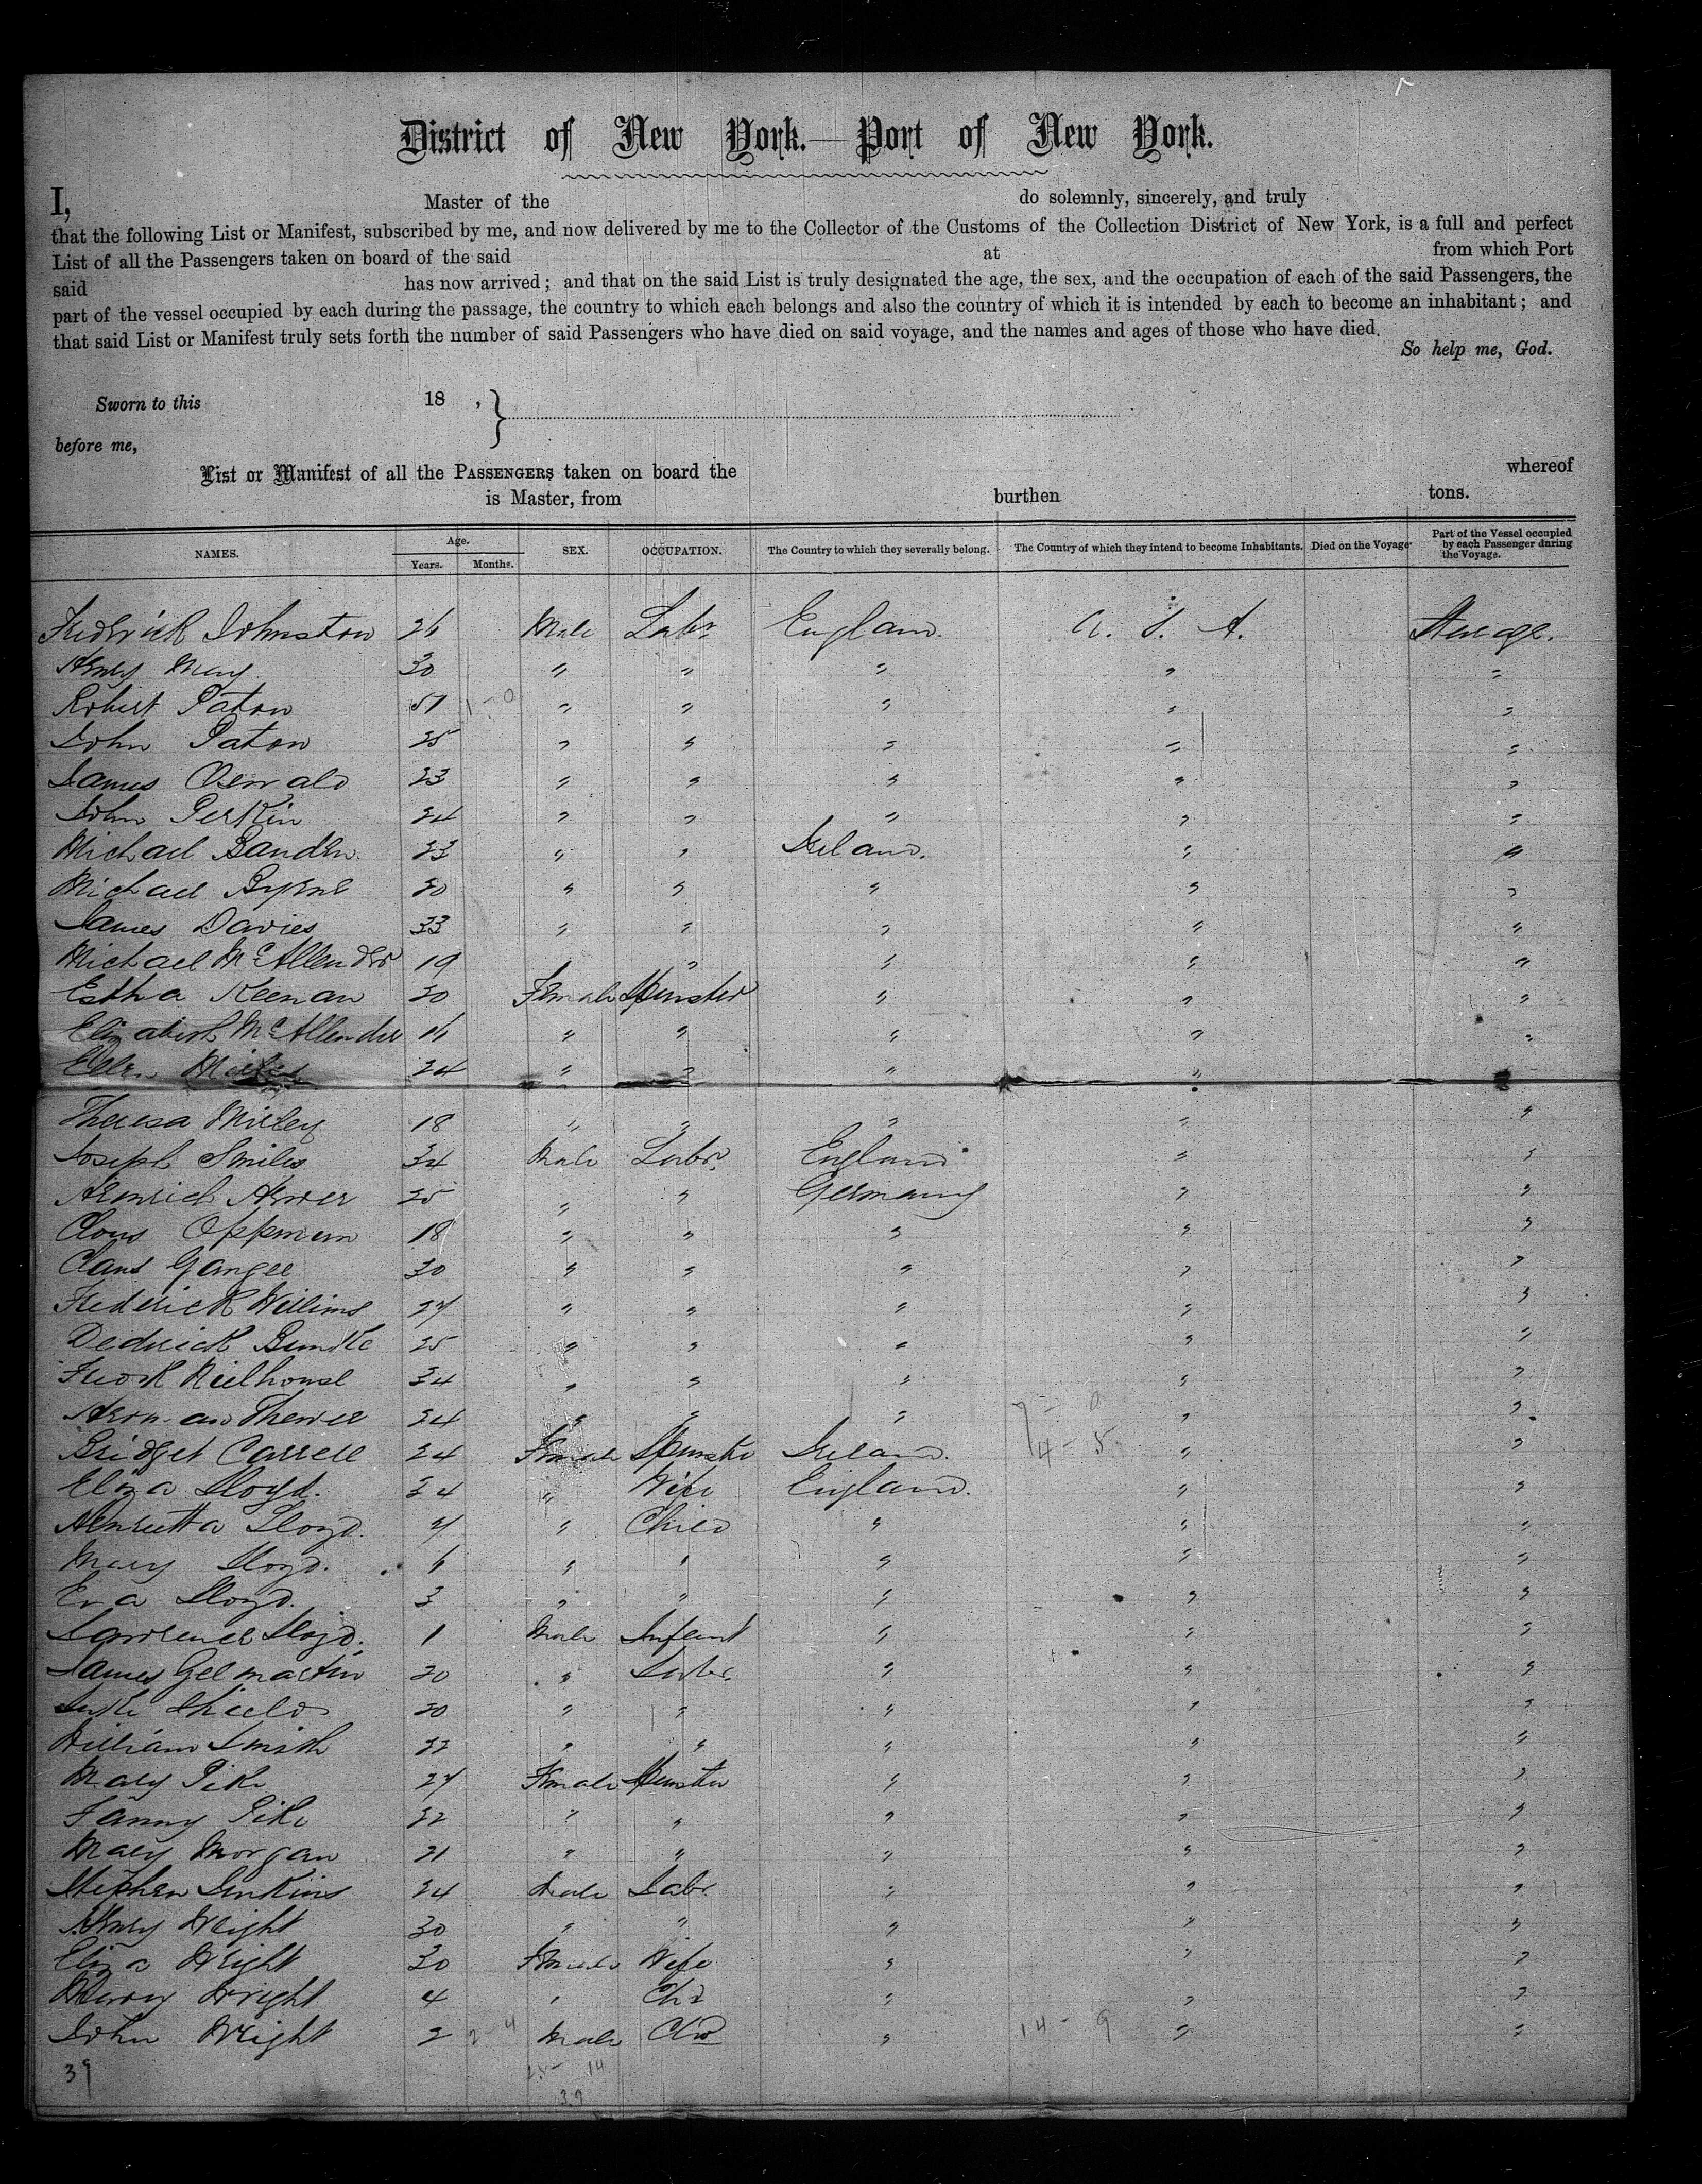 District of New York.—Port of New York.
I, Master of the do solemnly, sincerely, and truly
that the following List or Manifest, subscribed by me, and now delivered by me to the Collector of the Customs of the Collection District of New York, is a full and perfect
List of all the Passengers taken on board of the said at from which Port
said has now arrived; and that on the said List is truly designated the age, the sex, and the occupation of each of the said Passengers, the
part of the vessel occupied by each during the passage, the country to which each belongs and also the country of which it is intended by each to become an inhabitant; and
that said List or Manifest truly sets forth the number of said Passengers who have died on said voyage, and the names and ages of those who have died.
So help me, God.
Sworn to this 18 ,
before me,
List or Manifest of all the PASSENGERS taken on board the whereof
is Master, from burthen tons.
NAMES. Age. Years. Months. SEX. OCCUPATION. The Country to which they severally belong. The Country of which they intend to become Inhabitants. Died on the Voyage Part of the Vessel occupied by each Passenger during the Voyage.
Frederick Johnston 26 Male Labr England. U. S. A. Steerage.
Henry May 30 " " " " "
Robert Paton 51 " " " " "
John Paton 25 " " " " "
James Oswald 23 " " " " "
John Perkin 24 " " " " "
Michael 23 " " Ireland. " "
Michael Byrne 20 " " " " "
James Davies 33 " " " " "
Michael McAllender 19 " " " " "
Estha Keenan 20 Female Spinster " " "
Elizabeth McAllender 16 " " " " "
Ellen 24 " " " " "
Theresa Mirley 18 " " " " "
Joseph Smiles 34 Male Labr. England " "
Heinrich 25 " " Germany " "
Claus Oppmann 18 " " " " "
Claus Gangee 20 " " " " "
Frederick Willims 27 " " " " "
Dedrick 25 " " " " "
Fredk 34 " " " " "
24 " " " " "
Bridget Carrell 24 Female Spinster Ireland. " "
Eliza Lloyd. 34 " Wife England. " "
Henrietta Lloyd. " Child " " "
Mary Lloyd. 6 " " " " "
Eva Lloyd. 3 " " " " "
Lawrence Lloyd. 1 Male Infant " " "
James Gelmartin 20 " Labr. " " "
Luke Shields 20 " " " " "
William Smith 22 " " " " "
Mary Pike 27 Female Spinster " " "
Fanny Pike 22 " " " " "
Mary Morgan 21 " " " " "
Stephen Jenkins 24 Male Labr. " " "
Henry Wright 30 " " " " "
Eliza Wright 30 Female Wife " " "
Wright 4 " Chd " " "
John Wright 2 Male Chd " " "
39 25 14
39